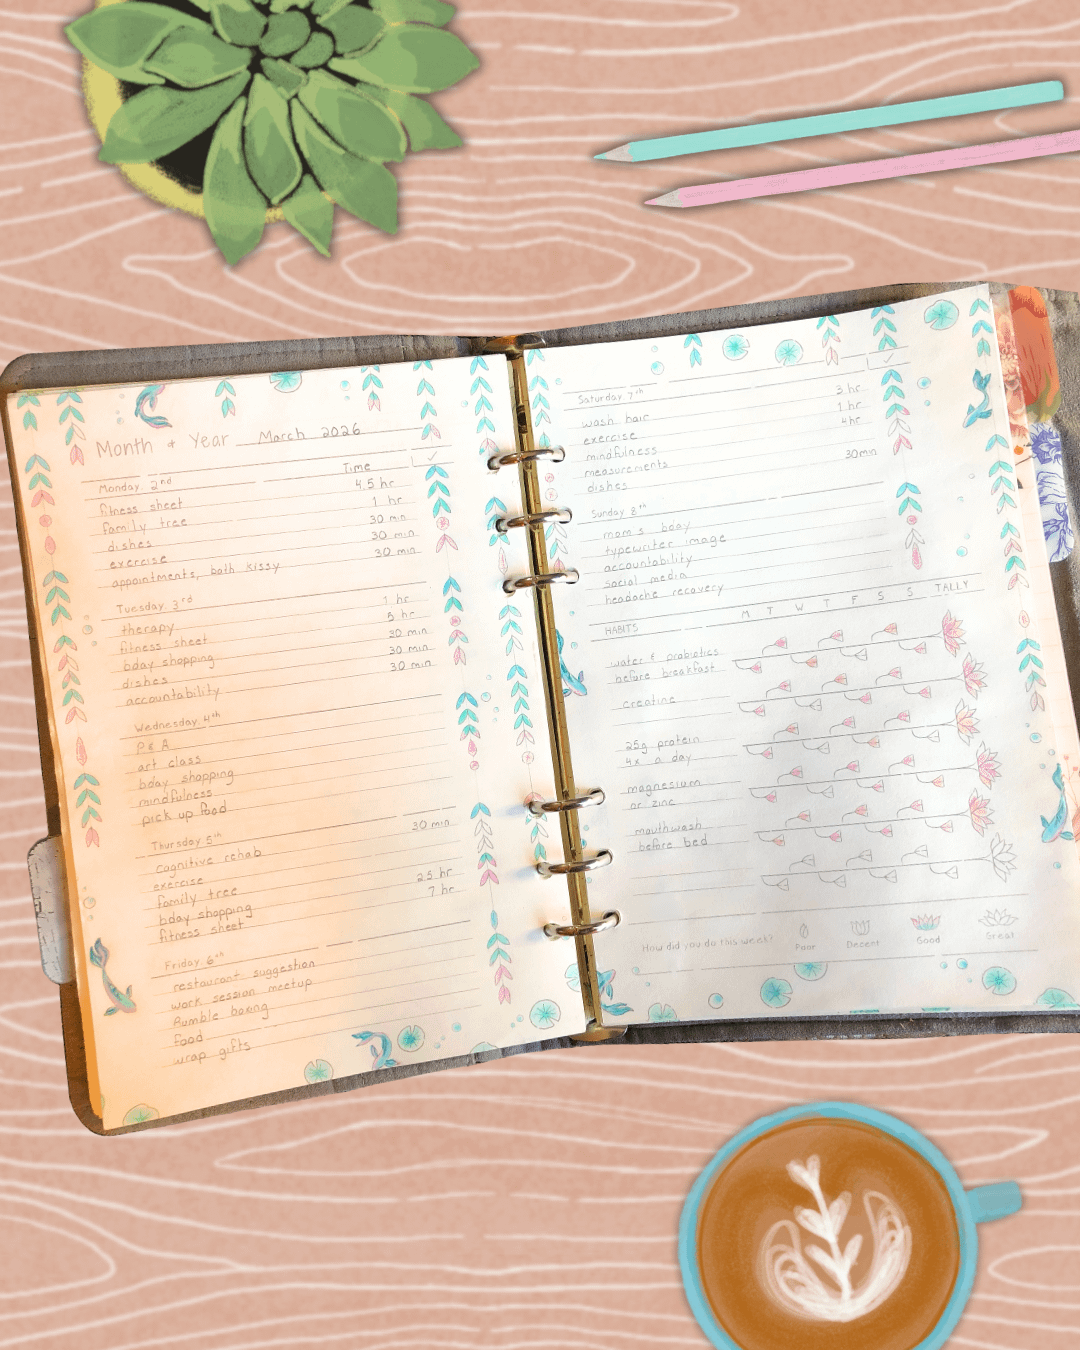 Month + Year March 2026
Time ✓
Monday 2nd
fitness sheet 4.5 hr
family tree 1 hr
dishes 30 min
exercise 30 min
appointments, bath kissy 30 min
Tuesday 3rd
therapy 1 hr
fitness sheet 5 hr
bday shopping 20 min
dishes 30 min
accountability 30 min
Wednesday 4th
P & A
art class
bday shopping
mindfulness
pick up food
Thursday 5th
cognitive rehab 30 min
exercise
family tree
bday shopping 2.5 hr
fitness sheet 7 hr
Friday 6th
restaurant suggestion
work session meetup
Rumble boxing
food
wrap gifts
✓
Saturday 7th
wash hair 3 hr
exercise 1 hr
mindfulness 4 hr
measurements
dishes 30 min
Sunday 8th
mom's bday
typewriter image
accountability
social media
headache recovery
HABITS M T W T F S S TALLY
water & probiotics
before breakfast
creatine
25g protein
4x a day
magnesium
or zinc
mouthwash
before bed
How did you do this week? Poor Decent Good Great